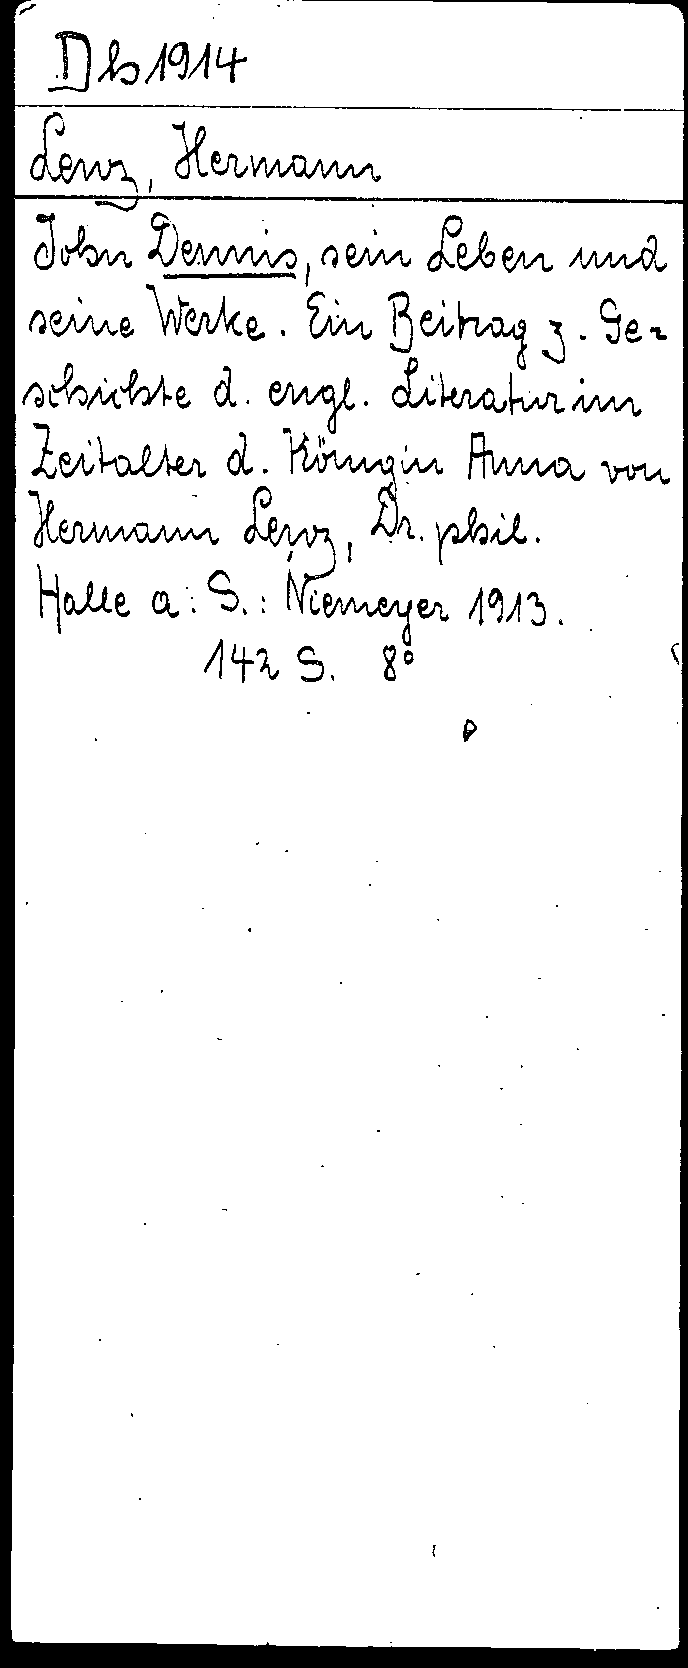 Db1914
Lenz, Hermann
John Dennis, sein Leben und
seine Werke. Ein Beitrag z. Ge-
schichte d. engl. Literatur im
Zeitalter d. Königin Anna von
Hermann Lenz, Dr. phil.
Halle a. S.: Niemeyer 1913.
142 S. 8°